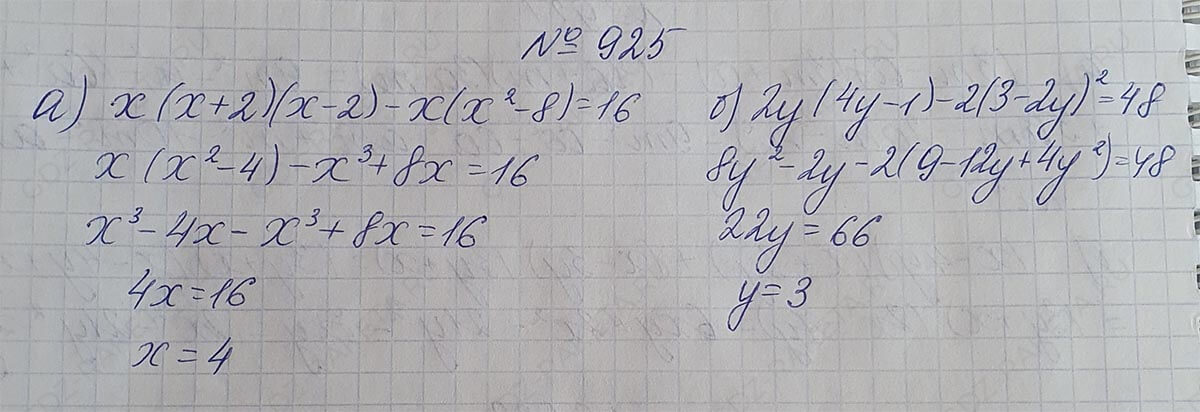 № 925
а) x(x+2)(x-2)-x(x²-8)=16
x(x²-4)-x³+8x=16
x³-4x-x³+8x=16
4x=16
x=4
б) 2y(4y-1)-2(3-2y)²=48
8y²-2y-2(9-12y+4y²)=48
22y=66
y=3